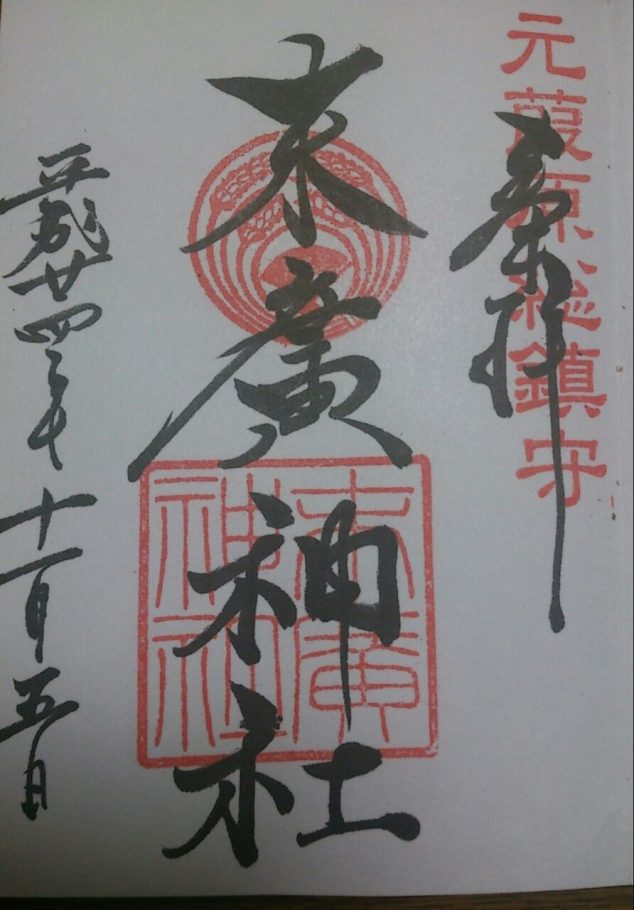 元葭原総鎮守
奉拝
末廣神社
末廣神社
平成廿四年十一月五日